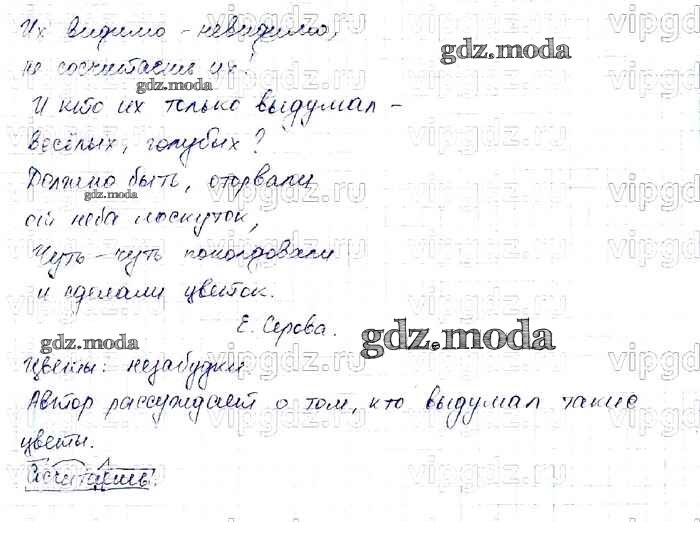 Их видимо-невидимо,
не сосчитаешь их!
И кто их только выдумал -
весёлых, голубых?
Должно быть, оторвали
от неба лоскуток,
Чуть-чуть поколдовали
и сделали цветок.
Е. Серова.
Цветы: незабудки
Автор рассуждает о том, кто выдумал такие
цветы.
Сосчитаешь.
gdz.moda
gdz.moda
gdz.moda
gdz.moda
gdz.moda
vipgdz.ru